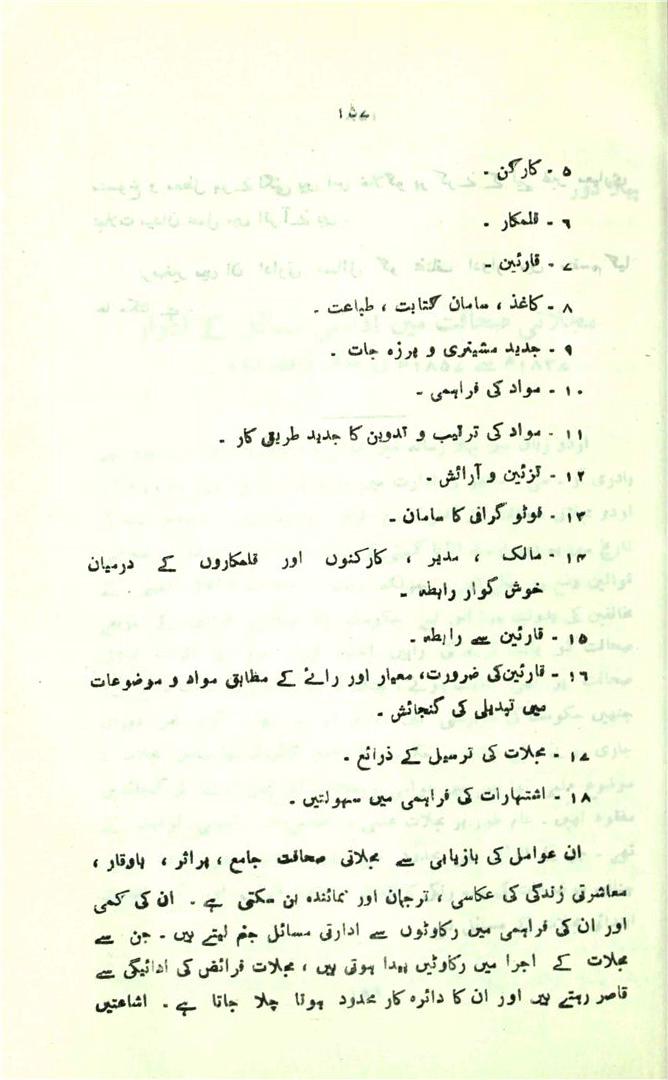 ۱۵۷
۵ - کارکن -
۶ - قلمکار -
۷ - قارئین -
۸ - کاغذ ، سامان کتابت ، طباعت -
۹ - جدید مشینری و پرزہ جات -
۱۰ - مواد کی فراہمی -
۱۱ - مواد کی ترتیب و تدوین کا جدید طریق کار -
۱۲ - تزئین و آرائش -
۱۳ - فوٹو گرافی کا سامان -
۱۴ - مالک ، مدیر ، کارکنوں اور قلمکاروں کے درمیان
خوش گوار رابطہ -
۱۵ - قارئین سے رابطہ -
۱۶ - قارئین کی ضرورت، معیار اور رائے کے مطابق مواد و موضوعات
میں تبدیلی کی گنجائش -
۱۷ - مجلات کی ترسیل کے ذرائع -
۱۸ - اشتہارات کی فراہمی میں سہولتیں -
ان عوامل کی بازیابی سے مجلاتی صحافت جامع ، پراثر ، باوقار ،
معاشرتی زندگی کی عکاسی ، ترجمان اور نمائندہ بن سکتی ہے - ان کی کمی
اور ان کی فراہمی میں رکاوٹوں سے ادارتی مسائل جنم لیتے ہیں - جن سے
مجلات کے اجرا میں رکاوٹیں پیدا ہوتی ہیں ، مجلات فرائض کی ادائیگی سے
قاصر رہتے ہیں اور ان کا دائرہ کار محدود ہوتا چلا جاتا ہے - اشاعتیں